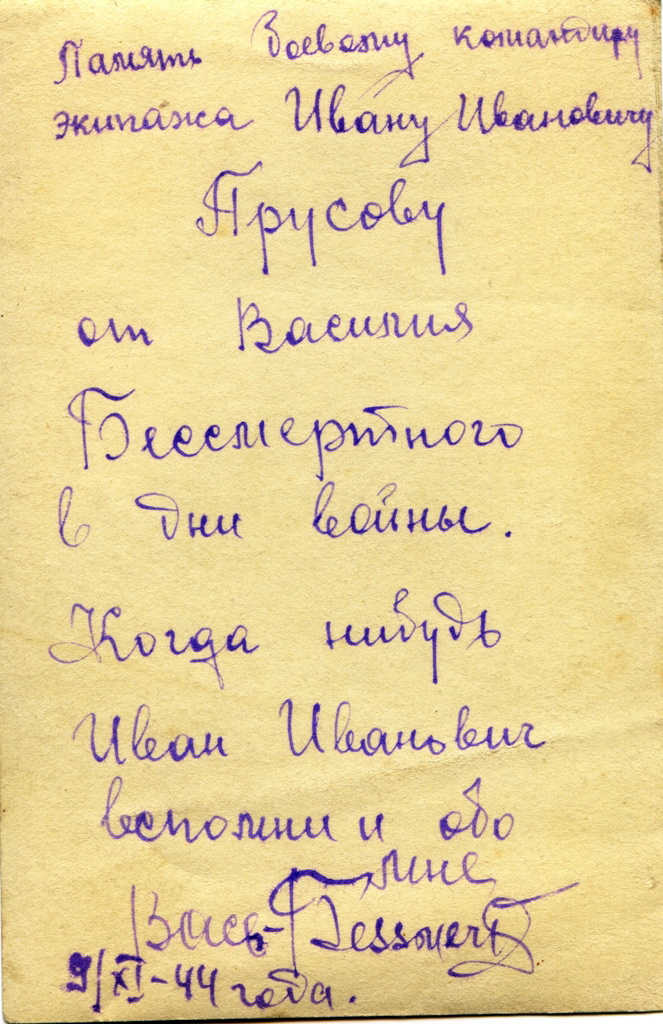 Память Боевому командиру
экипажа Ивану Ивановичу
Прусову
от Василия
Бессмертного
в дни войны.
Когда нибудь
Иван Иванович
вспомни и обо
мне
9/XI-44 года.